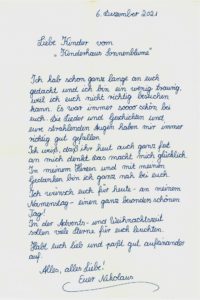 6. Dezember 2021
Liebe Kinder vom
"Kinderhaus Sonnenblume"
Ich hab schon ganz lange an euch
gedacht und ich bin ein wenig traurig,
weil ich euch nicht richtig besuchen
kann. Es war immer soooo schön bei
euch die Lieder und Geschichten und
eure strahlenden Augen haben mir immer
richtig gut gefallen.
Ich weiß, daß ihr heut auch ganz fest
an mich denkt das macht mich glücklich.
In meinem Herzen und mit meinen
Gedanken bin ich ganz nah bei euch.
Ich wünsch euch für heute - an meinem
Namenstag - einen ganz besonders schönen
Tag!
In der Advents- und Weihnachtszeit
sollen viele Sterne für euch leuchten.
Habt euch lieb und paßt gut aufeinander
auf.
Alles, alles Liebe!
Euer Nikolaus